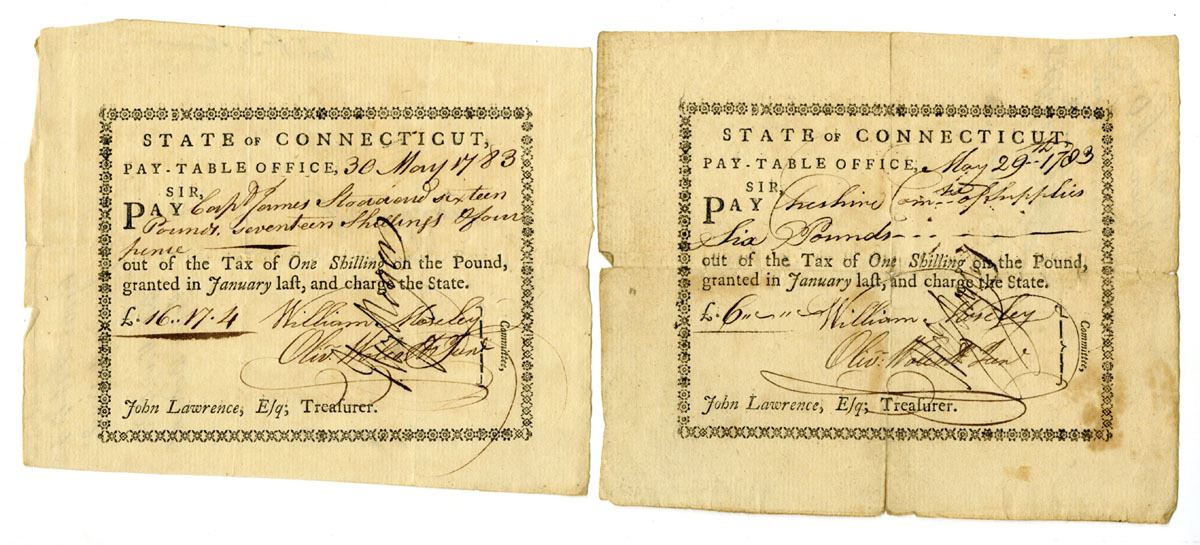 STATE OF CONNECTICUT,
PAY-TABLE OFFICE, 30 May 1783
SIR,
PAY Capt James Stoddard sixteen
Pounds, seventeen Shillings & four
pence
out of the Tax of One Shilling on the Pound,
granted in January laſt, and charge the State.
£. 16..17.4 William Moseley
Olivr Wolcott Junr
Committee,
John Lawrence, Eſq; Treaſurer.
STATE OF CONNECTICUT,
PAY-TABLE OFFICE, May 29th 1783
SIR,
PAY Cheshire Comtee of Supplies
Six Pounds
out of the Tax of One Shilling on the Pound,
granted in January laſt, and charge the State.
£. 6 William Moseley
Olivr Wolcott Junr
Committee,
John Lawrence, Eſq; Treaſurer.